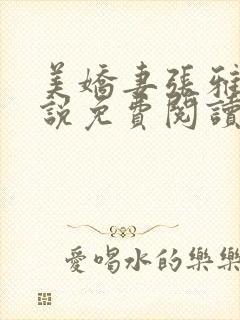 美嬌妻張雅
說免費閱讀
愛喝水的樂樂